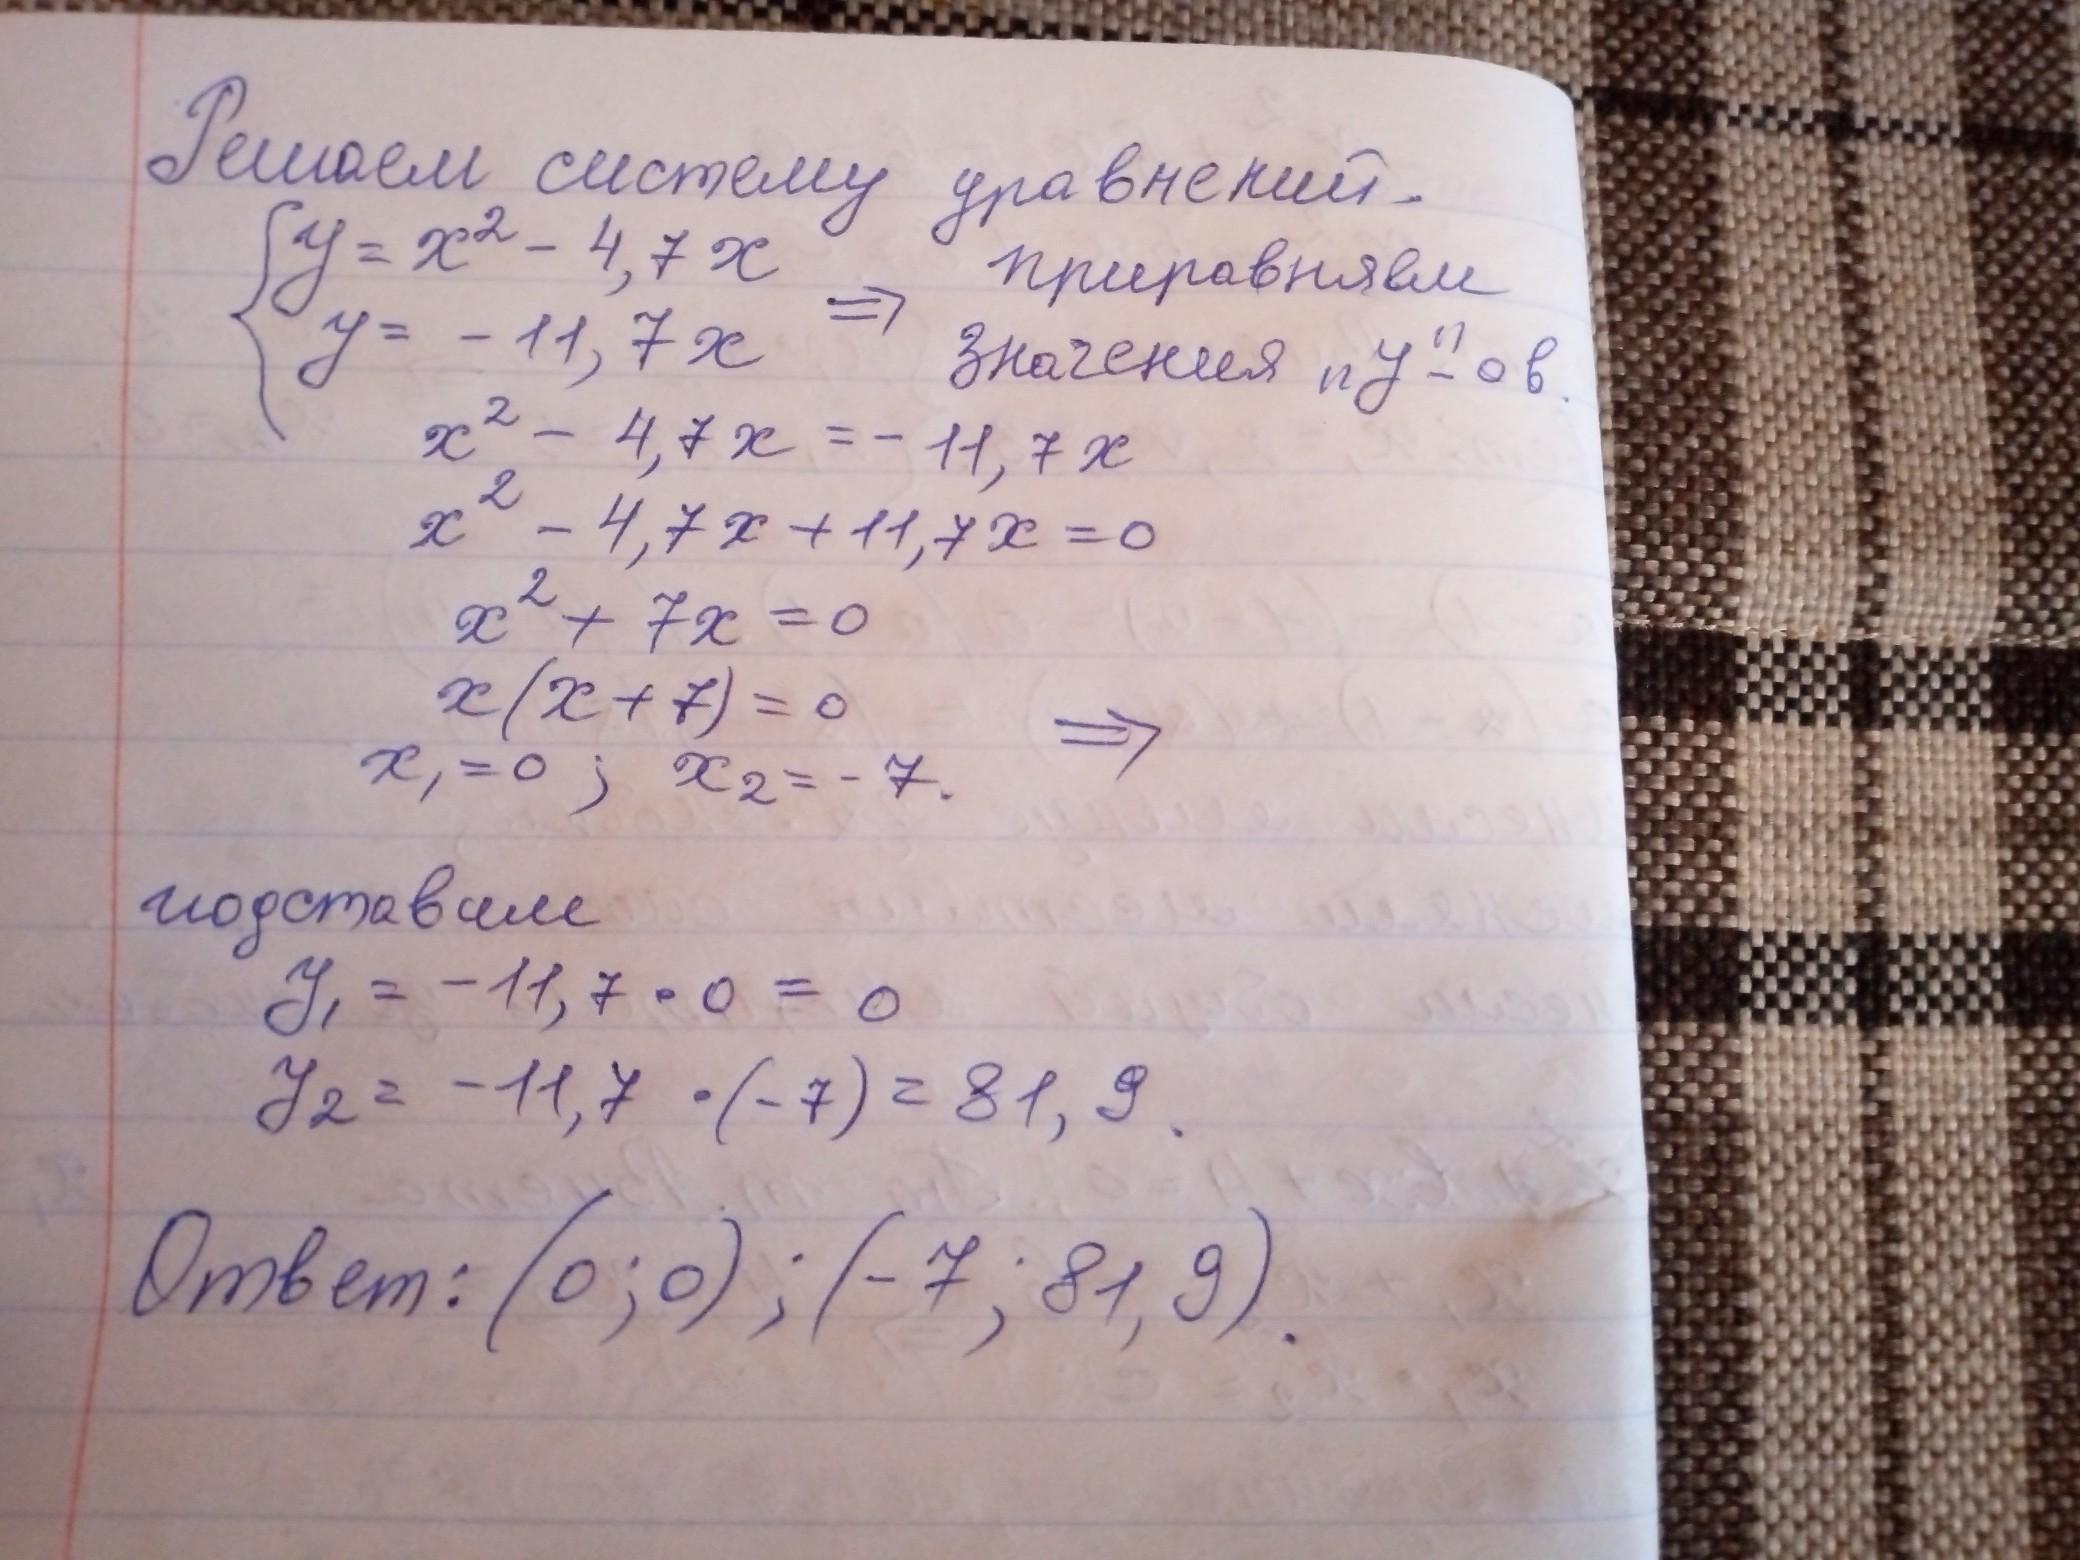 Решаем систему уравнений.
{ y = x² - 4,7x
y = -11,7x ⇒ приравняем
значения „y"-ов.
x² - 4,7x = -11,7x
x² - 4,7x + 11,7x = 0
x² + 7x = 0
x(x+7) = 0
x₁ = 0; x₂ = -7. ⇒
подставим
y₁ = -11,7 · 0 = 0
y₂ = -11,7 · (-7) = 81,9.
Ответ: (0;0); (-7; 81,9).